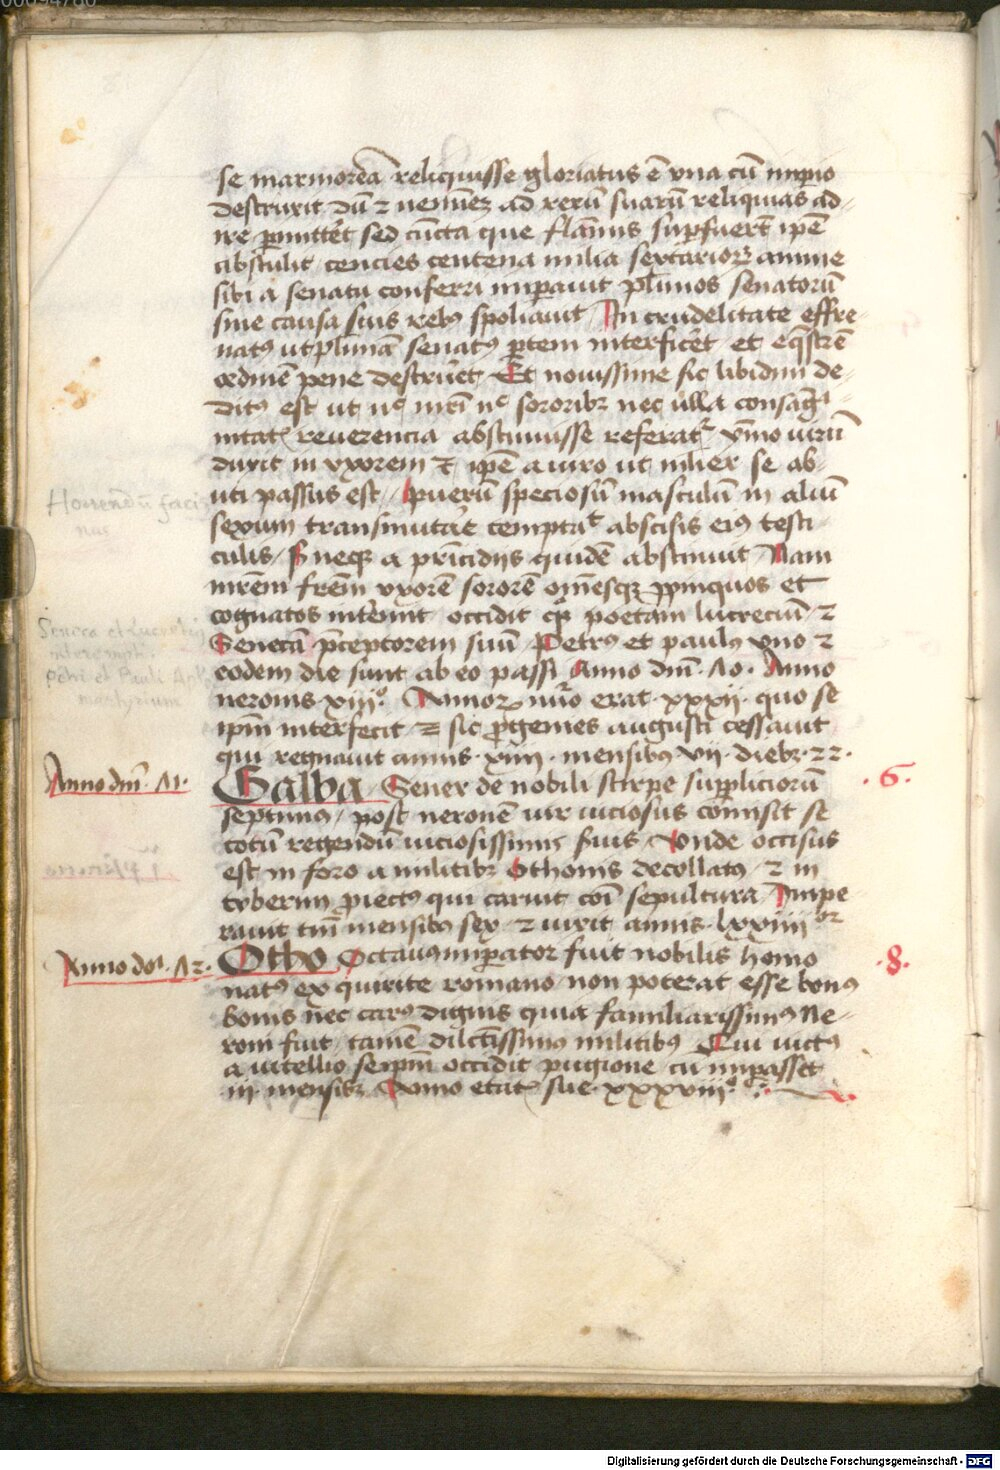 se marmoreā reliquisse gloriatus ē vna cū imperio
destruxit dū ⁊ neminez ad rerū suarū reliquias ad-
ire permittēt sed cūcta que flāmis supfuerūt ipē
abstulit cencies centena milia sextariorꝝ annue
sibi a senatu conferri imperauit plīmos senatorū
sine causa suis rebꝰ spoliauit In crudelitate effre-
natꝰ ut plīmā senatꝰ ptem interficeret et eq̄strē
ordinē pene destrueret Et nouissime sic libidini de-
ditꝰ est ut nec mr̄i nec sororibꝫ nec ulla consagwi-
nitatꝭ reuerencia abstinuisse referatur vīmo uirū
duxit in vxorem ⁊ ipē a uiro ut mlier se ab-
uti passus est puerū speciosū masculum in aliū
sexum transmutare temptauit abscisis eiꝰ testi-
culis neqꝫ a pricidijs quidē abstinuit Nam
mrēm frēm vxorē sororē omēsqꝫ ppinquos et
cognatos interimit occidit qꝫ poetam lucreciū ⁊
Senecā pceptorem suū Petrꝰ et paulꝰ vno ⁊
eodem die sunt ab eo passi Anno dm̄ ꞏ 70 ꞏ Anno
neronis xiiiiº Annorꝝ nūo erat ꞏ xxxii ꞏ quo se
ipm̄ interfecit ⁊ sic pgenies augusti cessauit
qui regnauit annis ꞏ xiiii ꞏ mensibus vii ꞏ diebꝫ ꞏ 22 ꞏ
Anno dm̄ ꞏ 71 ꞏ
Galba Gener de nobili stirpe suppliciorū
ꞏ 6 ꞏ
septimꝰ post neronē uir uiciosus comisit se
totū regendū uiciosissimis suis Vnde occisus
est in foro a militibꝫ Othonis decollatꝰ ⁊ in
tyberim piectꝰ qui caruit coī sepultura Impe-
rauit tm̄ mensibus sex ⁊ vixit annis ꞏ lxxiiii
Anno do¹ ꞏ 72 ꞏ
Otho Octauꝰ imperator fuit nobilis homo
ꞏ 8 ꞏ
natꝰ ex quirite romano non poterat esse bonꝰ
bonis nec carꝰ dignis quia familiarissimꝰ Ne-
roni fuit tamē dilectissimus militibꝰ Qui uictꝰ
a uitellio seipm̄ occidit pugione cū imperasset
iii mensibꝫ Anno etatꝭ sue ꞏ xxxviiiº
Horrendū faci-
nus
Seneca et Lucretiꝰ
interempti
Petri et Pauli Ap
martyrium
Digitalisierung gefördert durch die Deutsche Forschungsgemeinschaft - DFG